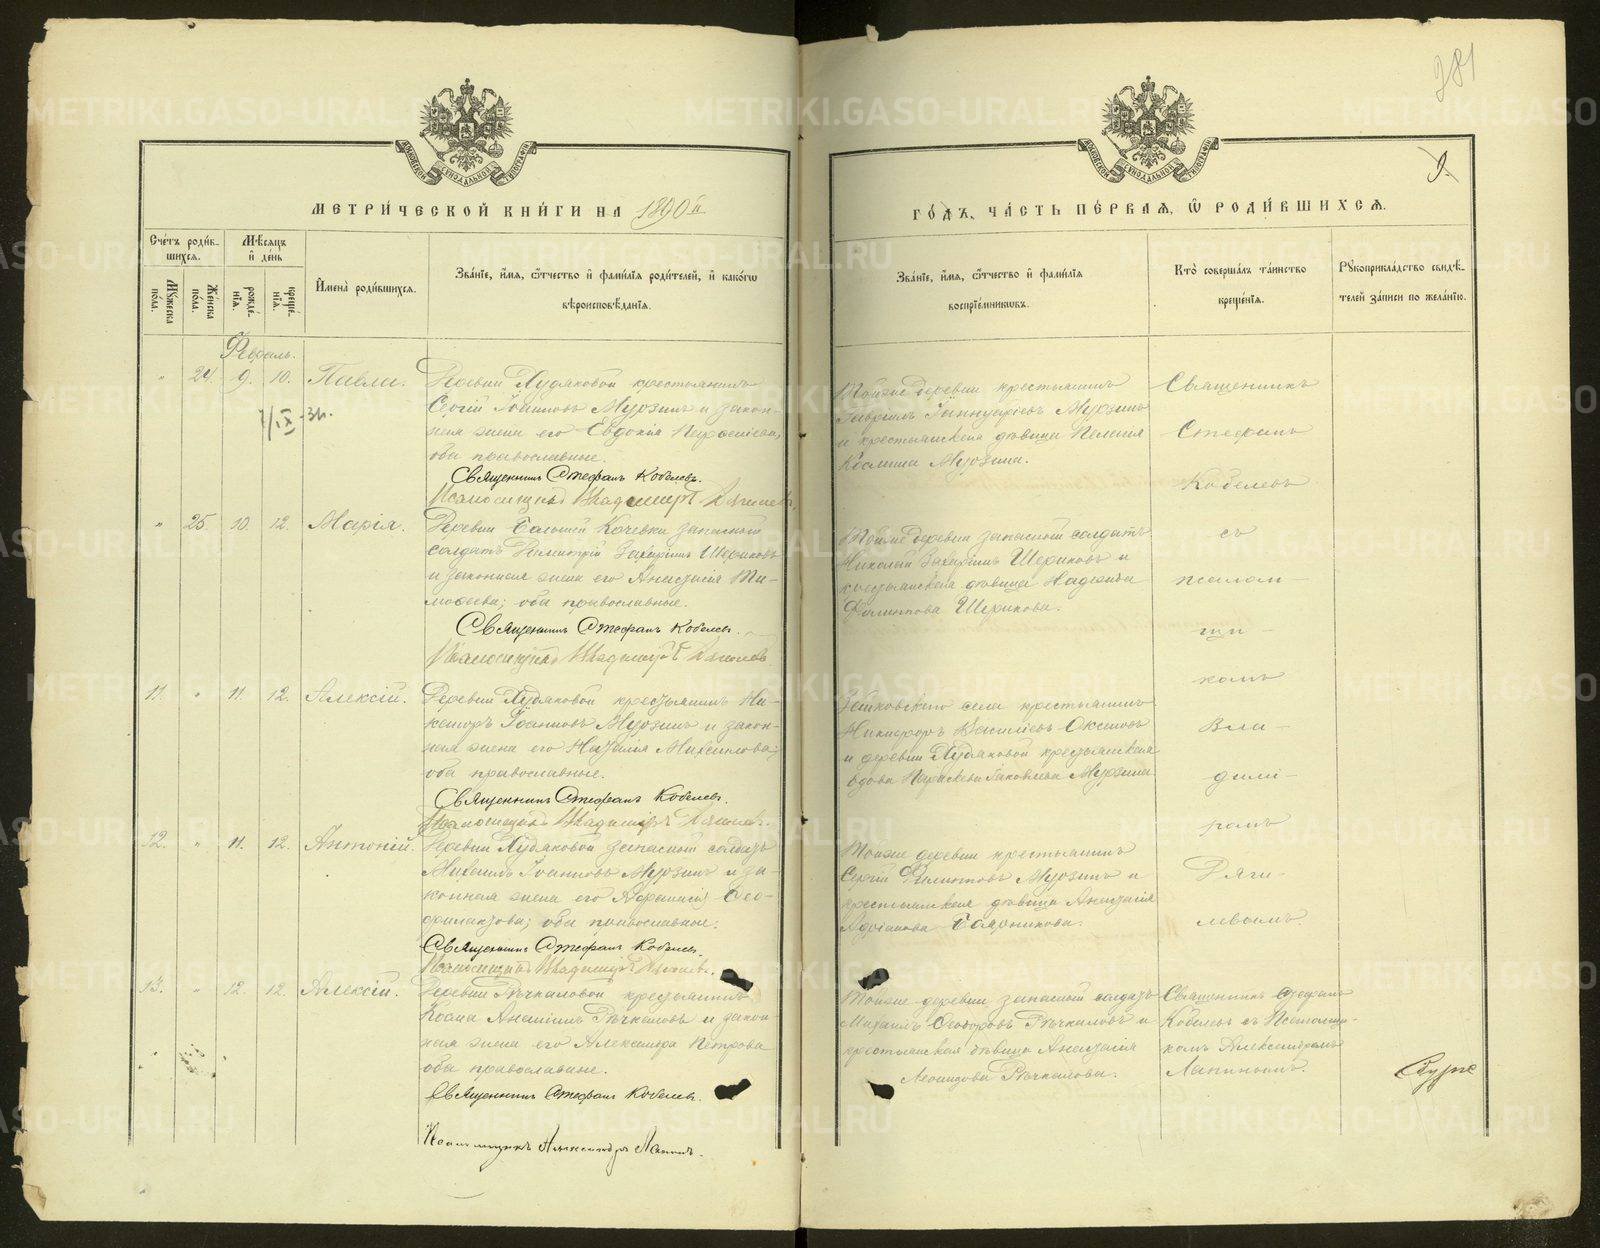 281
9.
МЕТРИ́ЧЕСКОЙ КНИ́ГИ НА 1890й
ГО́ДЪ, ЧА́СТЬ ПЕ́РВАЯ, Ѡ РОДИ́ВШИХСЯ.
Сче́тъ роди́вшихся.
Му́жеска по́ла.
Же́нска по́ла.
Мѣ́сяцъ и де́нь
рожде́нія.
креще́нія.
Имена̀ роди́вшихся.
Зва́ніе, и́мя, ѻ́тчество и фами́лія роди́телей, и како́гѡ
вѣроисповѣ́данія.
Зва́ніе, и́мя, ѻ́тчество и фами́лія
воспріе́мникѡвъ.
Кто̀ соверша́лъ та́инство
креще́нія.
Рꙋкоприкла́дство свидѣ́-
телей за́писи по жела́нію.
Февраль.
" 24. 9. 10. Павла.
Деревни Худяковой крестьянинъ
Сергій Іоанновъ Мурзинъ и закон-
ная жена его Евдокія
оба православные.
Священникъ Стефанъ Кобелевъ.
Псаломщикъ Владиміръ Дягилевъ
Тойже деревни крестьянинъ
Гавріилъ Іаннуаріевъ Мурзинъ
и крестьянская дѣвица Пелагія
Космина Мурзина.
Священникъ
Стефанъ
Кобелевъ
съ
псалом-
щи-
комъ
Вла-
димі-
ромъ
Дяги-
левымъ
" 25. 10. 12. Марія.
Деревни Большой Кочевки запасный
солдатъ Димитрій Захаринъ Шериковъ
и законная жена его Анастасія Ти-
моѳеева; оба православные.
Священникъ Стефанъ Кобелевъ.
Псаломщикъ Владиміръ Дягилевъ
Тойже деревни запасный солдатъ
Николай Захаринъ Шериковъ и
крестьянская дѣвица Надежда
Филиппова Шерикова.
11. " 11. 12. Алексій.
Деревни Худяковой крестьянинъ Ни-
каноръ Іоанновъ Мурзинъ и закон-
ная жена его Наталія Михаилова,
оба православные.
Священникъ Стефанъ Кобелевъ.
Псаломщикъ Владиміръ Дягилевъ.
села крестьянинъ
Никифоръ Васильевъ
и деревни Худяковой крестьянская
вдова Параскева Іаковлева Мурзина
12. " 11. 12. Антоній.
Деревни Худяковой запасный солдатъ
Михаилъ Іоанновъ Мурзинъ и за-
конная жена его Ѳео-
филактова; оба православные.
Священникъ Стефанъ Кобелевъ.
Псаломщикъ Владиміръ Дягилевъ.
Тойже деревни крестьянинъ
Сергій Филипповъ Мурзинъ и
крестьянская дѣвица Анастасія
Адріанова
13. " 12. 12. Алексій.
Деревни Рѣчкаловой крестьянинъ
Косма Ананіинъ Рѣчкаловъ и закон-
ная жена его Александра Петрова
оба православные.
Священникъ Стефанъ Кобелевъ.
Псаломщикъ Александръ Лапинъ.
Тойже деревни запасный солдатъ
Михаилъ Ѳеодоровъ Рѣчкаловъ и
крестьянская дѣвица Анастасія
Леонидова Рѣчкалова.
Священникъ Стефанъ
Кобелевъ съ Псаломщи-
комъ Александромъ
Лапинымъ.
METRIKI.GASO-URAL.RU